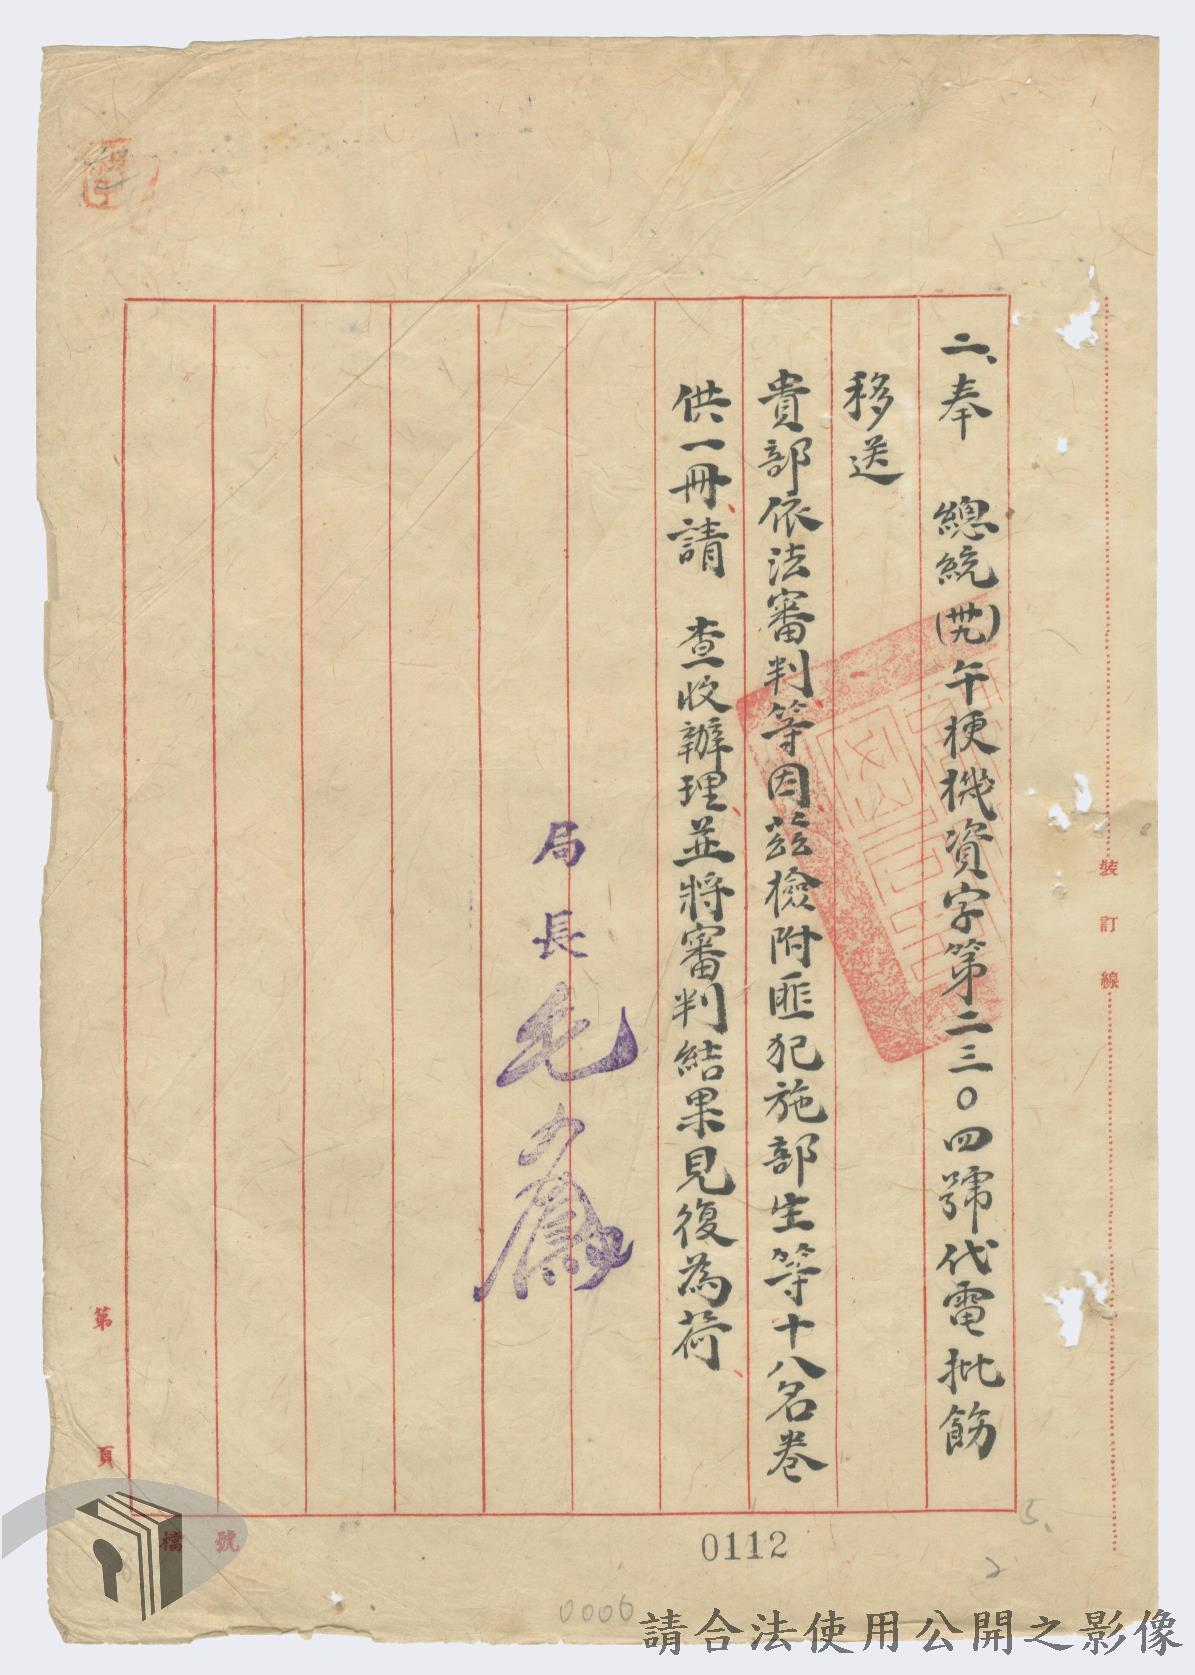 二、奉　總統(卅九)午梗機資字第二三〇四號代電批飭
移送
貴部依法審判等因茲檢附匪犯施部生等十八名卷
供一冊請　查收辦理並將審判結果見復為荷
局長毛人鳳
裝訂線
第　頁
檔號
0112
0006
請合法使用公開之影像